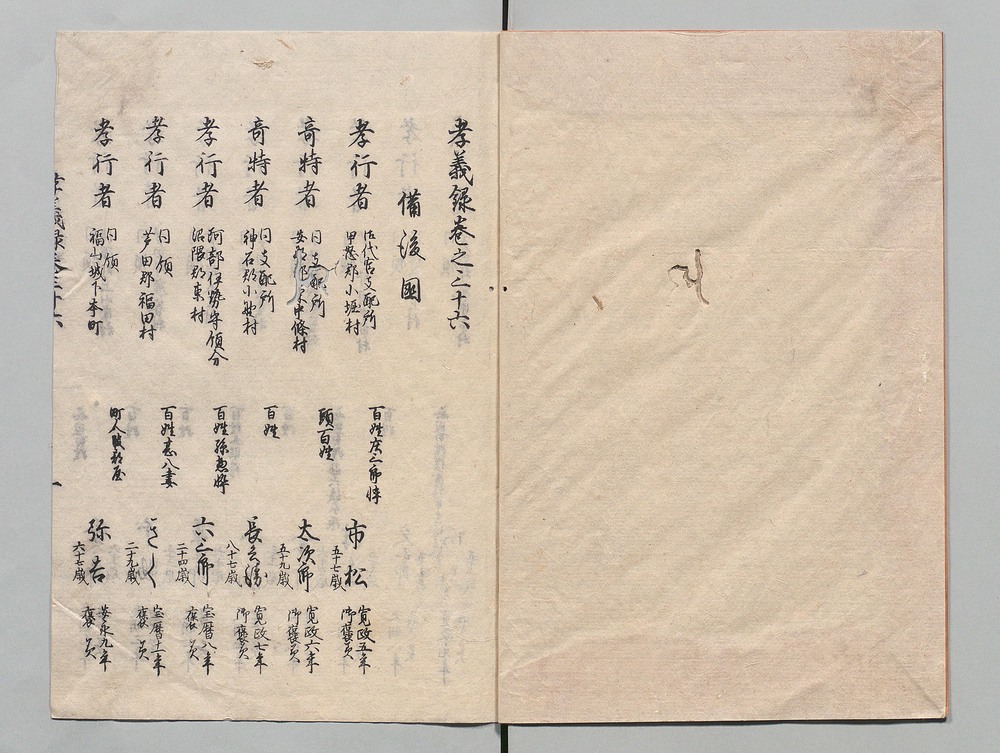 孝義録巻之三十六
備後国
孝行者
御代官支配所
甲怒郡小堀村
百姓庄三郎悴
市松
五十七歳
寛政五年
御褒美
奇特者
同支配所
中條村
頭百姓
太次郎
五十九歳
寛政六年
御褒美
奇特者
同支配所
神石郡小畑村
百姓
長三
八十七歳
寛政七年
御褒美
孝行者
阿部伊勢守領分
沼隈郡東村
百姓孫惣悴
六三郎
二十四歳
宝暦八年
褒美
孝行者
同領
芦田郡福田村
百姓甚八妻
きく
二十九歳
宝暦十一年
褒美
孝行者
同領
福山城下本町
町人
弥吉
六十七歳
安永九年
褒美
孝義録巻三十六
一